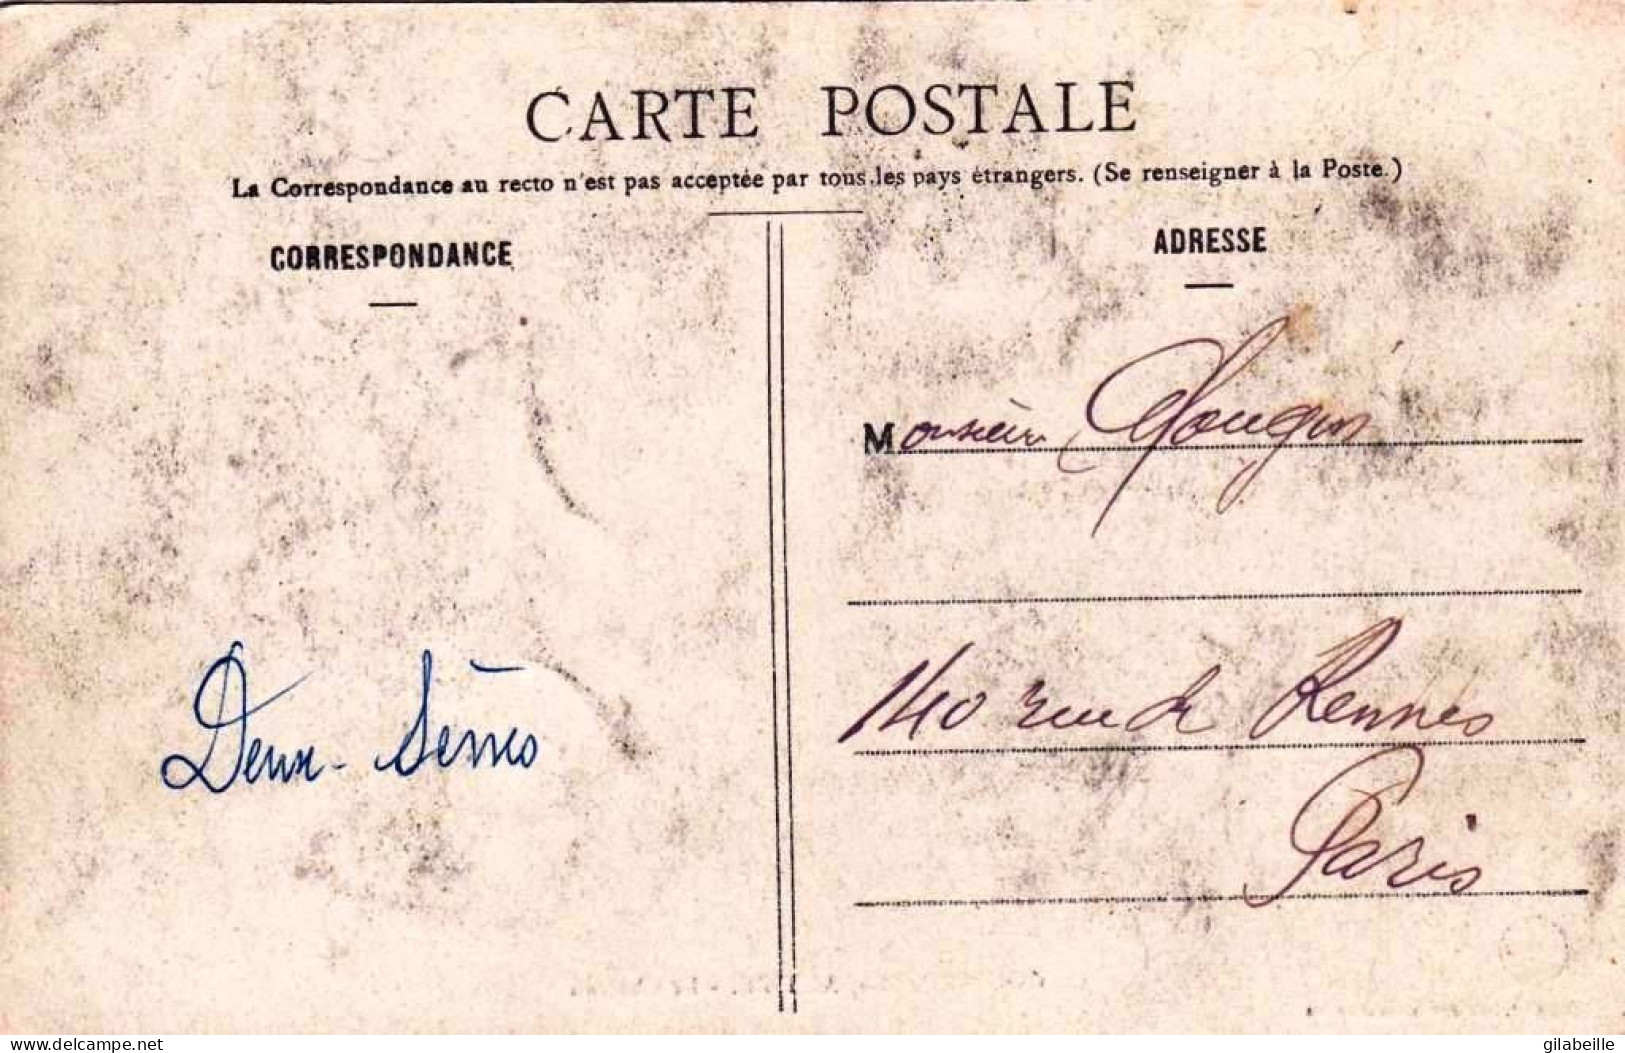 CARTE POSTALE
La Correspondance au recto n'est pas acceptée par tous les pays étrangers. (Se renseigner à la Poste.)
CORRESPONDANCE
ADRESSE
Monsieur
140 rue de Rennes
Paris
Deux-Sèvres
delcampe.net
gilabeille